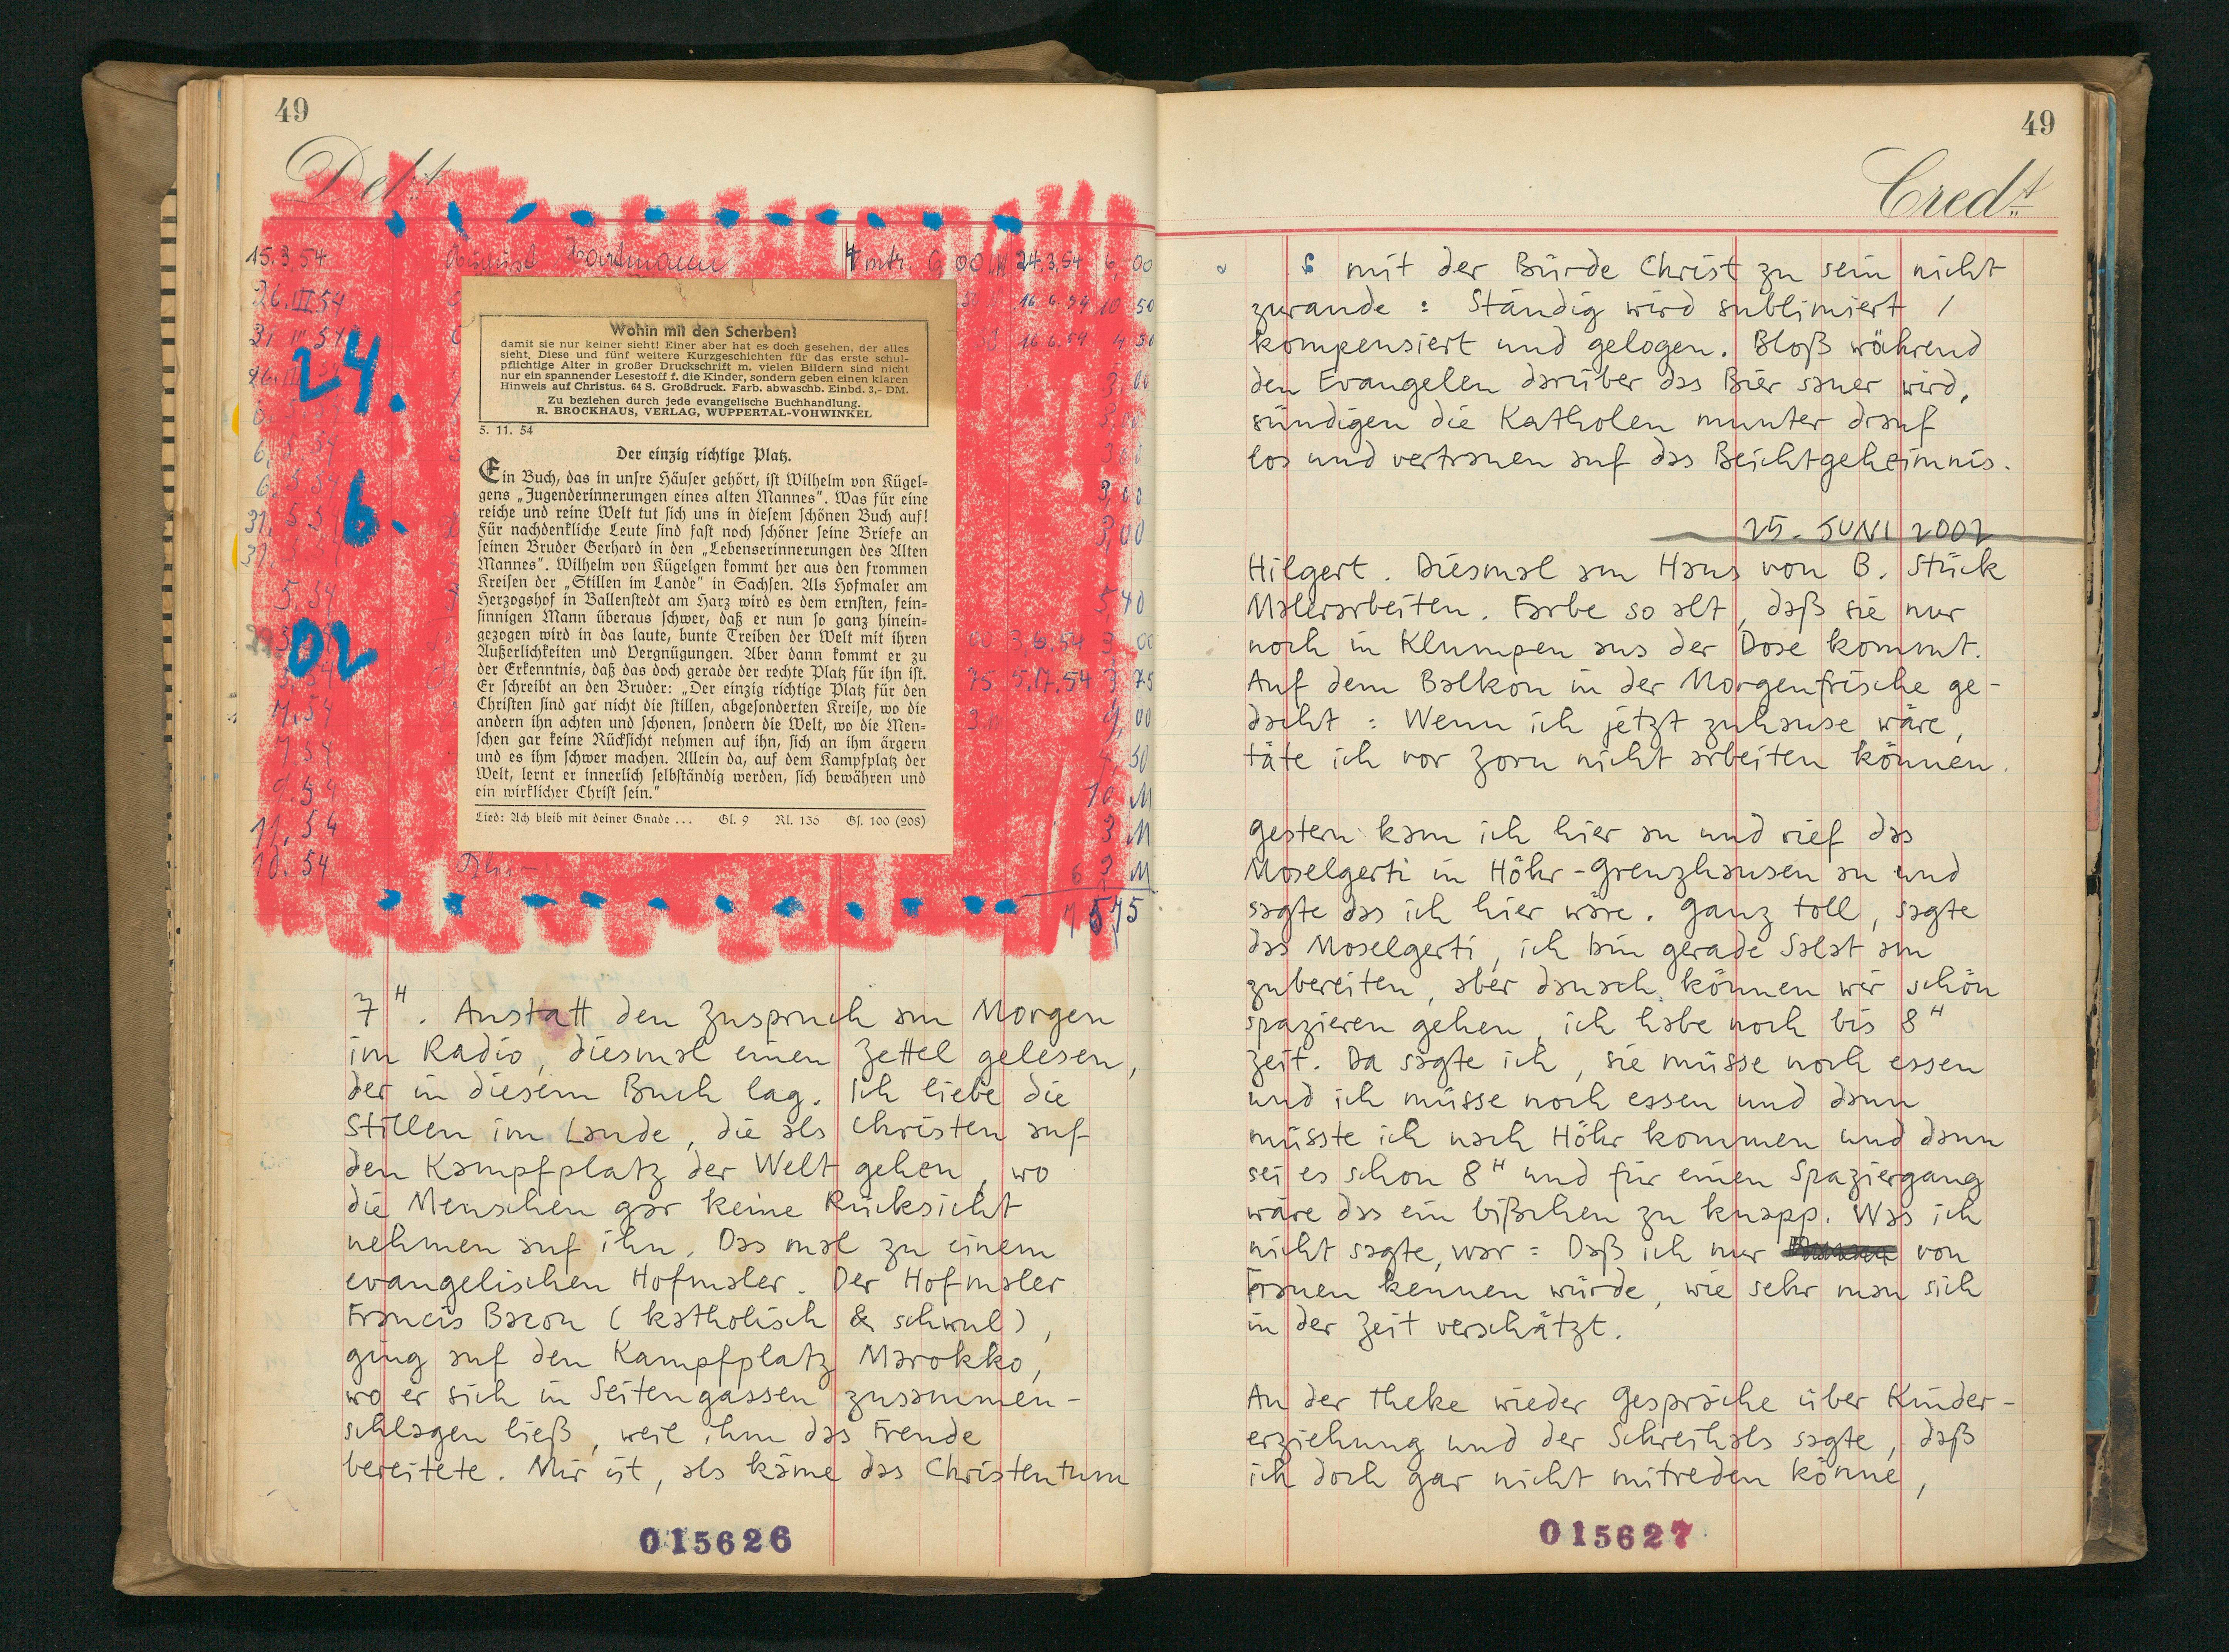 49
Debt
15.3.54 August Hartmann 4 mtr. 6 00 24.3.54 6 00
26.III.54 16.6.54 10 50
31 III 54 16 6.54 4 50
24.
3,00
3,00
6.
3,00
3,00
02
5,40
00 3.6.54 3 00
75 5.17.54 3 75
9,00
50
10 M
11.54 3 M
10.54 M
Wohin mit den Scherben?
damit sie nur keiner sieht! Einer aber hat es doch gesehen, der alles
sieht. Diese und fünf weitere Kurzgeschichten für das erste schul-
pflichtige Alter in großer Druckschrift m. vielen Bildern sind nicht
nur ein spannender Lesestoff f. die Kinder, sondern geben einen klaren
Hinweis auf Christus. 64 S. Großdruck. Farb. abwaschb. Einbd. 3,- DM.
Zu beziehen durch jede evangelische Buchhandlung.
R. BROCKHAUS, VERLAG, WUPPERTAL-VOHWINKEL
5. 11. 54
Der einzig richtige Platz.
Ein Buch, das in unsre Häuser gehört, ist Wilhelm von Kügel-
gens „Jugenderinnerungen eines alten Mannes“. Was für eine
reiche und reine Welt tut sich uns in diesem schönen Buch auf!
Für nachdenkliche Leute sind fast noch schöner seine Briefe an
seinen Bruder Gerhard in den „Lebenserinnerungen des Alten
Mannes“. Wilhelm von Kügelgen kommt her aus den frommen
Kreisen der „Stillen im Lande“ in Sachsen. Als Hofmaler am
Herzogshof in Ballenstedt am Harz wird es dem ernsten, fein-
sinnigen Mann überaus schwer, daß er nun so ganz hinein-
gezogen wird in das laute, bunte Treiben der Welt mit ihren
Äußerlichkeiten und Vergnügungen. Aber dann kommt er zu
der Erkenntnis, daß das doch gerade der rechte Platz für ihn ist.
Er schreibt an den Bruder: „Der einzig richtige Platz für den
Christen sind gar nicht die stillen, abgesonderten Kreise, wo die
andern ihn achten und schonen, sondern die Welt, wo die Men-
schen gar keine Rücksicht nehmen auf ihn, sich an ihm ärgern
und es ihm schwer machen. Allein da, auf dem Kampfplatz der
Welt, lernt er innerlich selbständig werden, sich bewähren und
ein wirklicher Christ sein.“
Lied: Ach bleib mit deiner Gnade ... Gl. 9 Rl. 136 Gs. 100 (208)
7H. Anstatt den Zuspruch am Morgen
im Radio, diesmal einen Zettel gelesen,
der in diesem Buch lag. Ich liebe die
Stillen im Lande, die als Christen auf
den Kampfplatz der Welt gehen, wo
die Menschen gar keine Rücksicht
nehmen auf ihn. Das mal zu einem
evangelischen Hofmaler. Der Hofmaler
Francis Bacon (katholisch & schwul),
ging auf den Kampfplatz Marokko,
wo er sich in Seitengassen zusammen-
schlagen ließ, weil ihm das Freude
bereitete. Mir ist, als käme das Christentum
015626
49
Credt
mit der Bürde Christ zu sein nicht
zurande: Ständig wird sublimiert /
kompensiert und gelogen. Bloß während
den Evangelen darüber das Bier sauer wird,
sündigen die Katholen munter drauf
los und vertrauen auf das Beichtgeheimnis.
25. JUNI 2002
Hilgert. Diesmal am Haus von B. Stück
Malerarbeiten. Farbe so alt, daß sie nur
noch in Klumpen aus der Dose kommt.
Auf dem Balkon in der Morgenfrische ge-
dacht: Wenn ich jetzt zuhause wäre,
täte ich vor Zorn nicht arbeiten können.
Gestern kam ich hier an und rief das
Moselgerti in Höhr-Grenzhausen an und
sagte das ich hier wäre. Ganz toll, sagte
das Moselgerti, ich bin gerade Salat am
zubereiten, aber danach können wir schön
spazieren gehen, ich habe noch bis 8H
Zeit. Da sagte ich, sie müsse noch essen
und ich müsse noch essen und dann
müsste ich nach Höhr kommen und dann
sei es schon 8H und für einen Spaziergang
wäre das ein bißchen zu knapp. Was ich
nicht sagte, war: Daß ich nur von
Frauen kennen würde, wie sehr man sich
in der Zeit verschätzt.
An der Theke wieder Gespräche über Kinder-
erziehung und der Schreihals sagte, daß
ich doch gar nicht mitreden könne,
015627